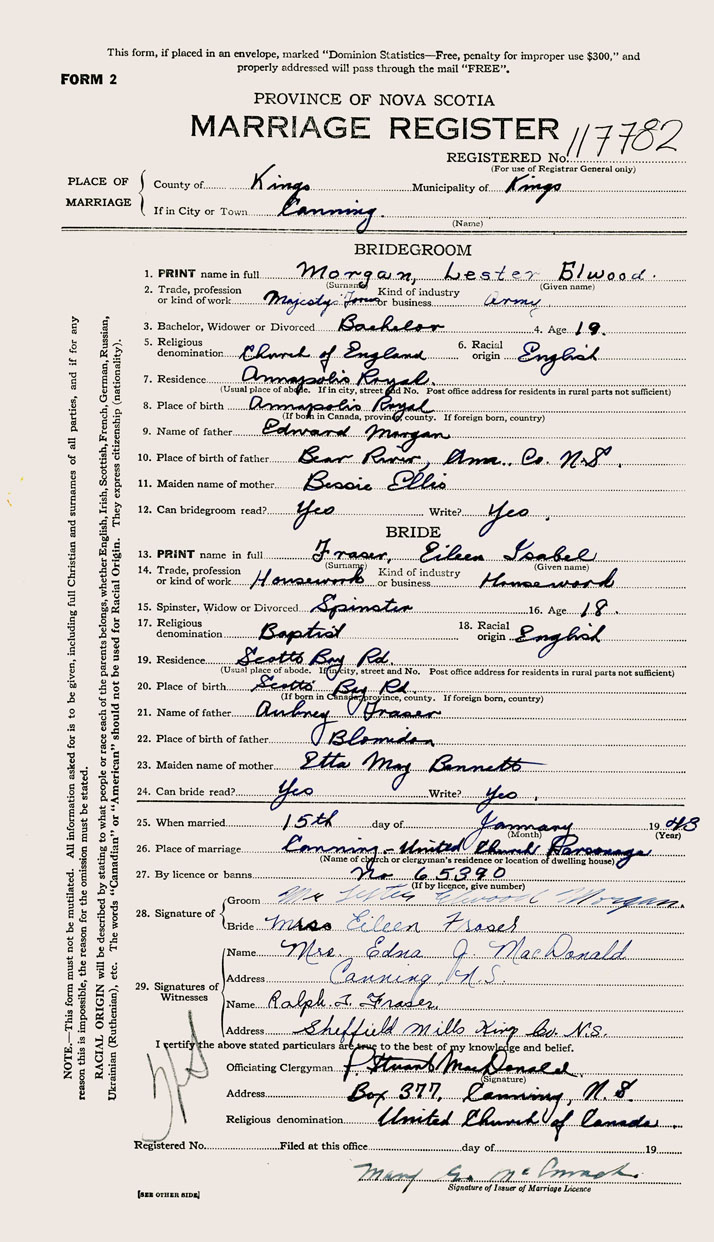 This form, if placed in an envelope, marked "Dominion Statistics—Free, penalty for improper use $300," and
properly addressed will pass through the mail "FREE".
FORM 2
PROVINCE OF NOVA SCOTIA
MARRIAGE REGISTER
117782
REGISTERED No.
(For use of Registrar General only)
PLACE OF MARRIAGE
County of Kings Municipality of Kings
If in City or Town Canning.
(Name)
BRIDEGROOM
1. PRINT name in full Morgan, Lester Elwood.
(Surname) (Given name)
2. Trade, profession or kind of work Majesty Kind of industry or business Army
3. Bachelor, Widower or Divorced Bachelor 4. Age 19.
5. Religious denomination Church of England 6. Racial origin English
7. Residence Annapolis Royal.
(Usual place of abode. If in city, street and No. Post office address for residents in rural parts not sufficient)
8. Place of birth Annapolis Royal
(If born in Canada, province, county. If foreign born, country)
9. Name of father Edward Morgan
10. Place of birth of father Bear River, Anna. Co. N.S.
11. Maiden name of mother Bessie Ellis
12. Can bridegroom read? Yes Write? Yes.
BRIDE
13. PRINT name in full Fraser, Eileen Isabel
(Surname) (Given name)
14. Trade, profession or kind of work Housework Kind of industry or business Housework
15. Spinster, Widow or Divorced Spinster 16. Age 18.
17. Religious denomination Baptist 18. Racial origin English
19. Residence Scotts Bay Rd.
(Usual place of abode. If in city, street and No. Post office address for residents in rural parts not sufficient)
20. Place of birth Scotts Bay Rd.
(If born in Canada, province, county. If foreign born, country)
21. Name of father Aubrey Fraser
22. Place of birth of father Blomidon
23. Maiden name of mother Etta May Bennett
24. Can bride read? Yes Write? Yes.
25. When married 15th day of January 1943
(Month) (Year)
26. Place of marriage Canning - United Church Parsonage
(Name of church or clergyman's residence or location of dwelling house)
27. By licence or banns No 65390
(If by licence, give number)
28. Signature of
Groom Mr Lester Elwood Morgan.
Bride Miss Eileen Fraser
29. Signatures of Witnesses
Name Mrs. Edna J. MacDonald
Address Canning, N.S.
Name Ralph I. Fraser
Address Sheffield Mills King Co. N.S.
I certify the above stated particulars are true to the best of my knowledge and belief.
Officiating Clergyman Stuart MacDonald
(Signature)
Address Box 377, Canning, N.S.
Religious denomination United Church of Canada.
Registered No. Filed at this office day of 19
Mary
Signature of Issuer of Marriage Licence
[SEE OTHER SIDE]
NOTE.—This form must not be mutilated. All information asked for is to be given, including full Christian and surnames of all parties, and if for any
reason this is impossible, the reason for the omission must be stated.
RACIAL ORIGIN will be described by stating to what people or race each of the parents belongs, whether English, Irish, Scottish, French, German, Russian,
Ukrainian (Ruthenian), etc. The words "Canadian" or "American" should not be used for Racial Origin. They express citizenship (nationality).